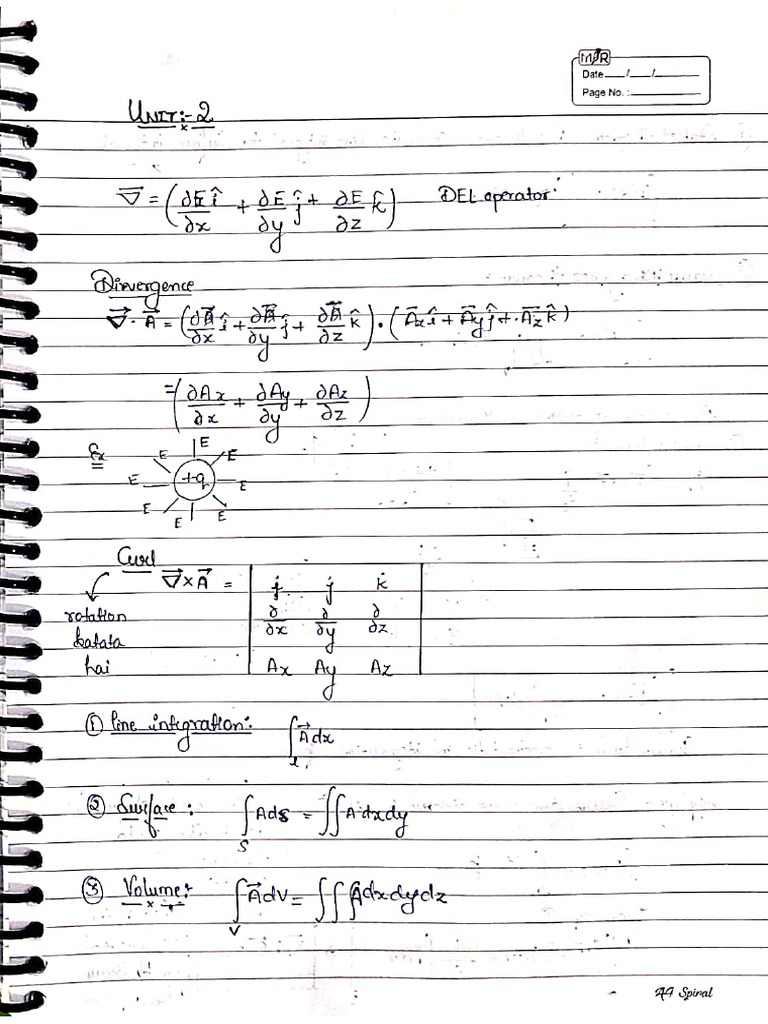 MJR
Date __/__/____
Page No.: ______
UNIT:-2
∇⃗ = (∂E/∂x î + ∂E/∂y ĵ + ∂E/∂z k̂) DEL operator:
Divergence
∇⃗ · A⃗ = (∂A⃗/∂x î + ∂A⃗/∂y ĵ + ∂A⃗/∂z k̂) · (A⃗x î + A⃗y ĵ + A⃗z k̂)
= (∂Ax/∂x + ∂Ay/∂y + ∂Az/∂z)
Ex
E
E E
E +q E
E E E
Curl
∇⃗ × A⃗ = | i j k |
rotation | ∂/∂x ∂/∂y ∂/∂z |
batata
hai | Ax Ay Az |
① Line integration: ∫l A⃗ dx
② Surface: ∫S A ds = ∫∫ A dx dy
③ Volume: ∫V A⃗ dV = ∫∫∫ A dx dy dz
A4 Spiral